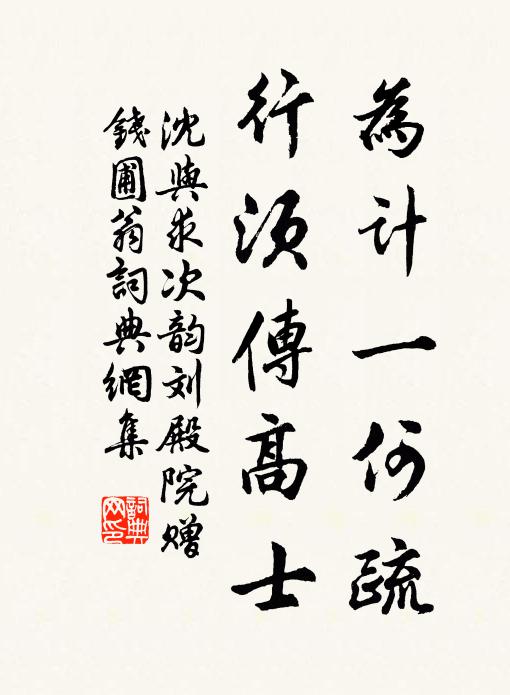 為計一何疏
行須傳高士
沈與求次韵刘殿院赠
錢圃翁詞典網集
詞典
网印